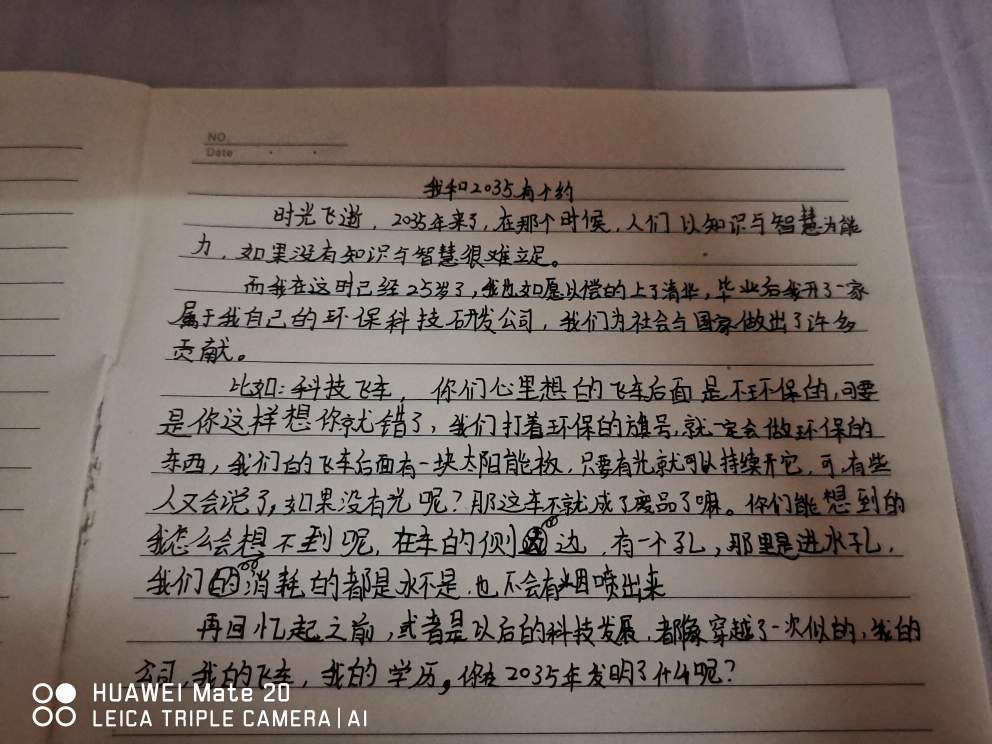 NO.
Date
我和2035有个约
时光飞逝,2035年来了,在那个时候,人们以知识与智慧为能
力,如果没有知识与智慧很难立足。
而我在这时已经25岁了,我也如愿以偿的上了清华,毕业后我开了一家
属于我自己的环保科技研发公司,我们为社会与国家做出了许多
贡献。
比如:科技飞车,你们心里想的飞车后面是不环保的,可要
是你这样想你就错了,我们打着环保的旗号,就一定会做环保的
东西,我们的飞车后面有一块太阳能板,只要有光就可以持续开它,可有些
人又会说了,如果没有光呢?那这车不就成了废品了嘛。你们能想到的
我怎么会想不到呢,在车的侧边,有一个孔,那里是进水孔,
我们消耗的都是水不是,也不会有烟喷出来
再回忆起之前,或者是以后的科技发展,都像穿越了一次似的,我的
公司,我的飞车,我的学历。你在2035年发明了什么呢?
HUAWEI Mate 20
LEICA TRIPLE CAMERA | AI